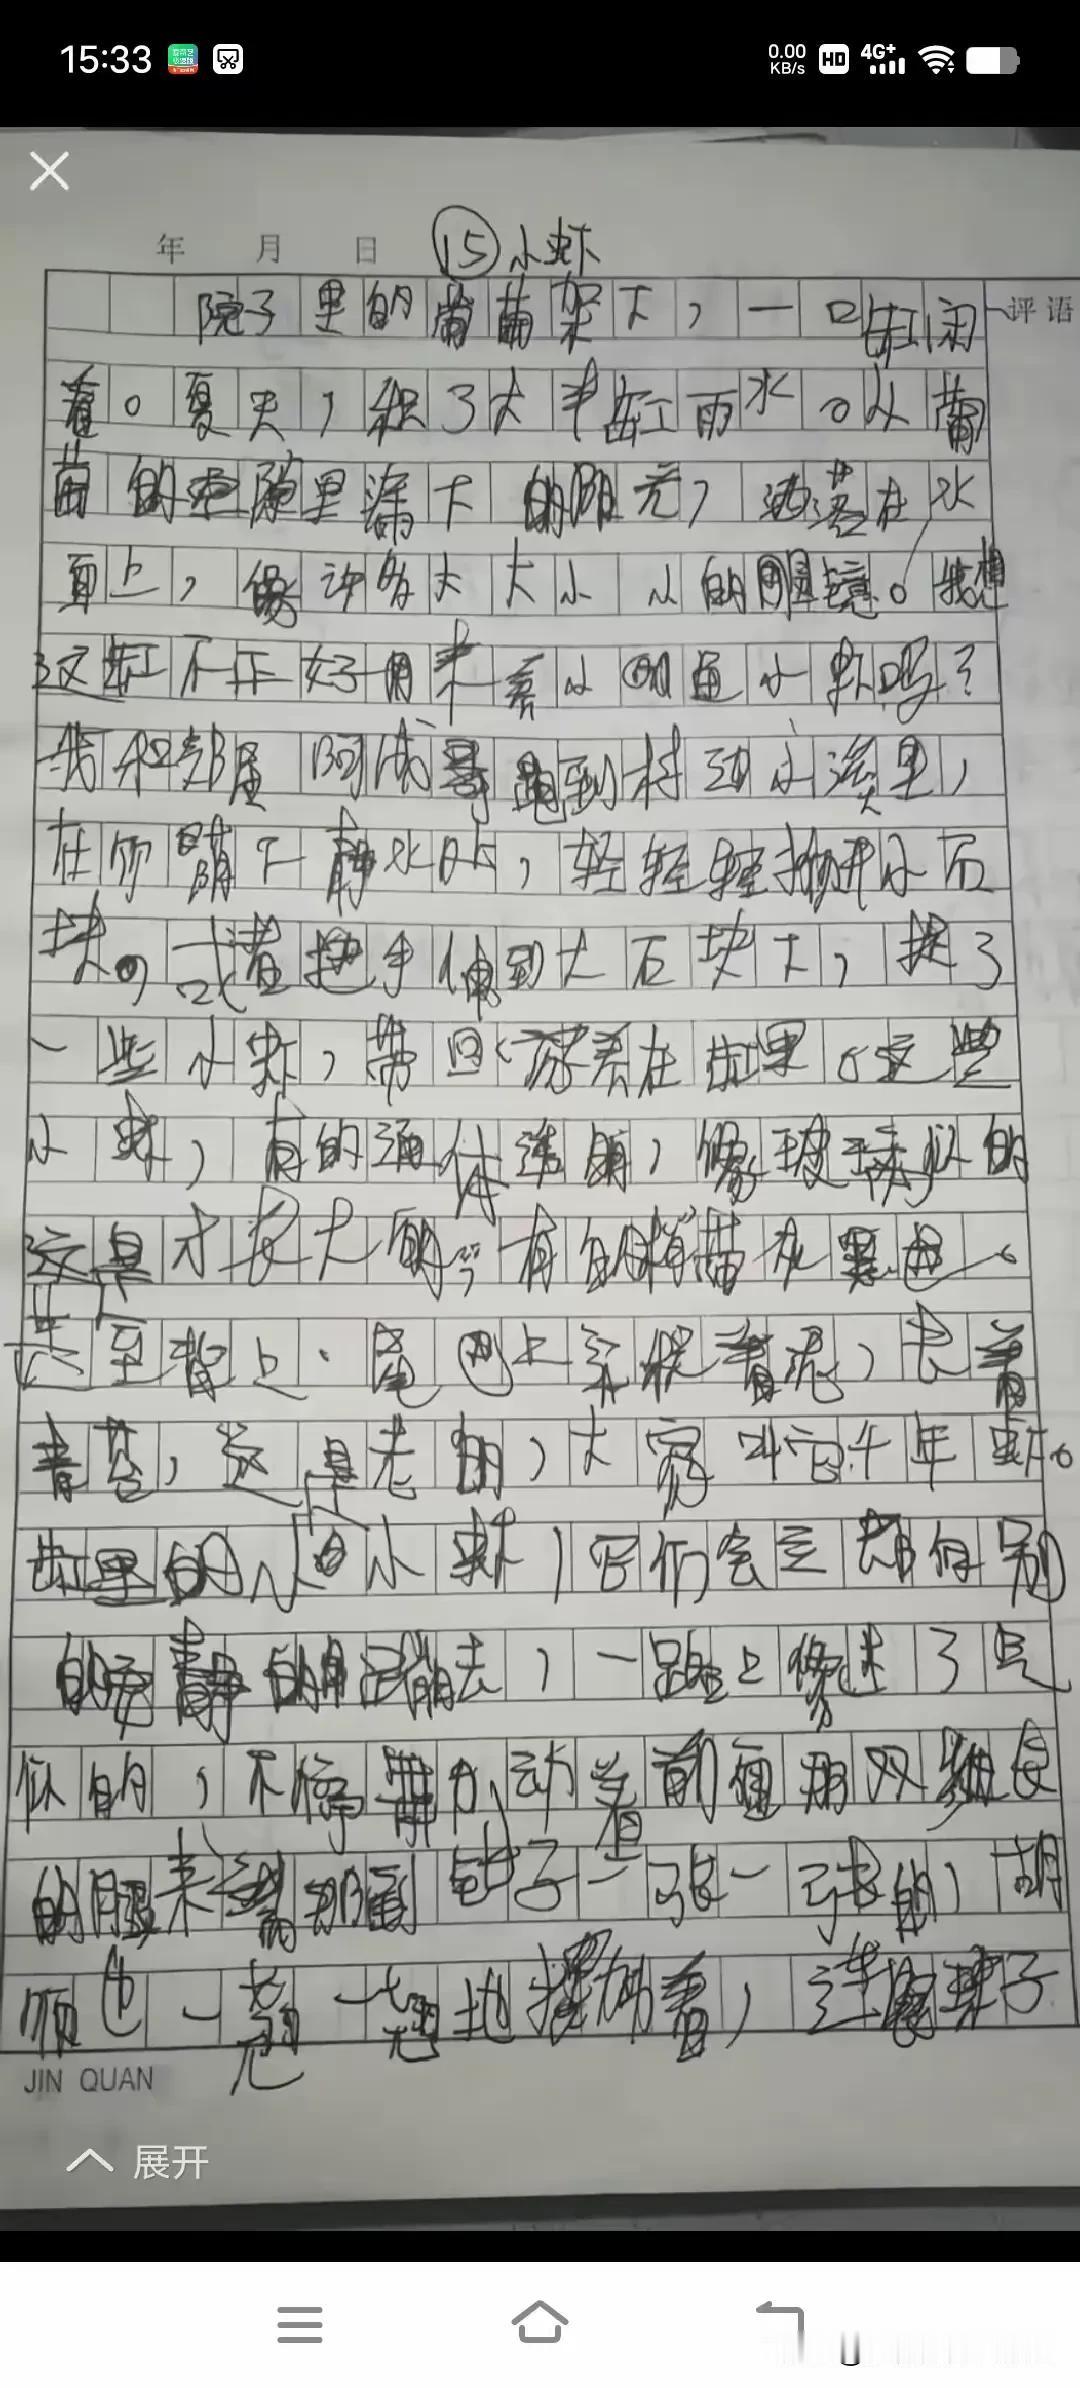 15:33
0.00 KB/s HD 4G+
年 月 日 ⑮小虾
院子里的葡萄架下，一口缸闲
评语
着。夏天，积了大半缸雨水。从葡
萄的空隙里漏下的阳光，洒落在水
面上，像许多大大小小的眼镜。我想
这缸不正好用来养小鱼小虾吗？
我和邻居阿成哥跑到村边小溪里，
在 静水 ，轻轻轻掀开小石
块。或者把手伸到大石块下，捉了
一些小虾，带回 养在缸里。这些
小虾，有的通体透明，像玻璃似的
这是才长大的；有的稍带灰黑色。
甚至背上、尾巴上 着泥，长着
青苔，这是老的，大家叫它千年虾。
缸里的 小虾，它们会 别
的安静的 去，一路上像迷了
似的，不停 动着前面那双 长
的腿 那 钳子一张一张的，胡
也一翘一翘地摆动着，连 珠子
JIN QUAN
展开